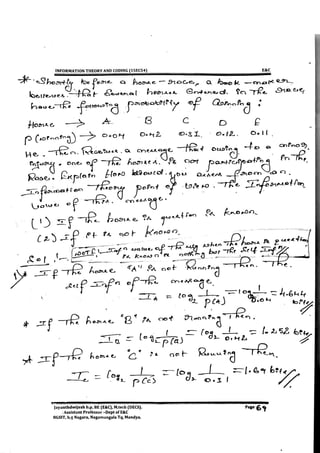 INFORMATION THEORY AND CODING (15EC54) E&C
* Shortly before a horse-race, a book-maker
believes that several horses entered in the race
have the following probability of winning :
Horse → A B C D E
P(winning) → 0.04 0.42 0.31 0.12 0.11
He then receives a message that owing to a minor
injury one of the horses is not participating in the
Race. Explain how would you assess from
Information theory point of view. The Information
value of this message.
(1) If the horse in question is known.
(2) If it is not known.
Sol :- NOTE: Infn value of the msg when the horse in question is known is nothing but the self Infn
1) If the horse "A" is not Running then. The
self Infn of the message.
I_A = log₂ 1/P(A) = log₂ 1/0.04 = 4.644 bits
* If the horse "B" is not Running then.
I_B = log₂ 1/P(B) = log₂ 1/0.42 = 1.252 bits
* If the horse "C" is not Running then,
I_C = log₂ 1/P(C) = log₂ 1/0.31 = 1.69 bits
Jayanthdwijesh h.p, BE (E&C), M.tech (DECS).
Assistant Professor –Dept of E&C
BGSIT, b.g Nagara, Nagamangala Tq, Mandya.
Page 69